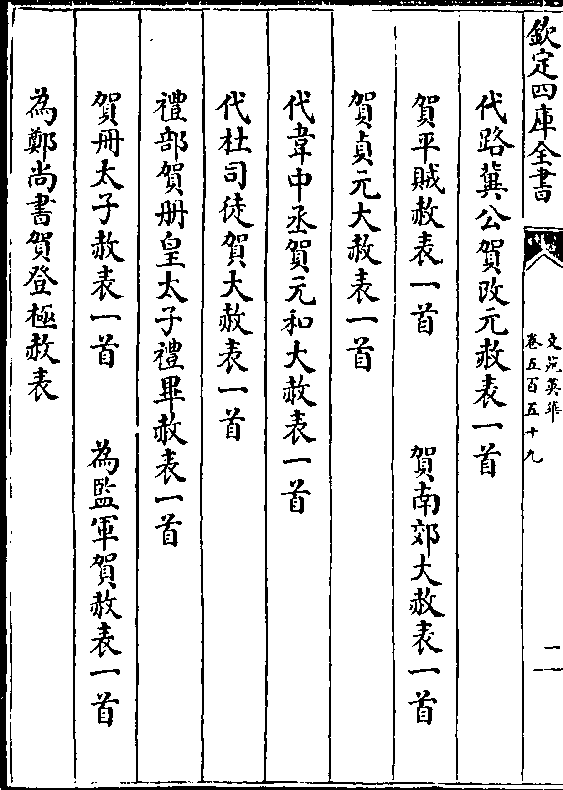 欽定四庫全書
文苑英華
卷五百五十九
二
代路冀公賀改元赦表一首
賀平賊赦表一首　賀南郊大赦表一首
賀貞元大赦表一首
代韋中丞賀元和大赦表一首
代杜司徒賀大赦表一首
禮部賀冊皇太子禮畢赦表一首
賀冊太子赦表一首　為監軍賀赦表一首
為鄭尚書賀登極赦表